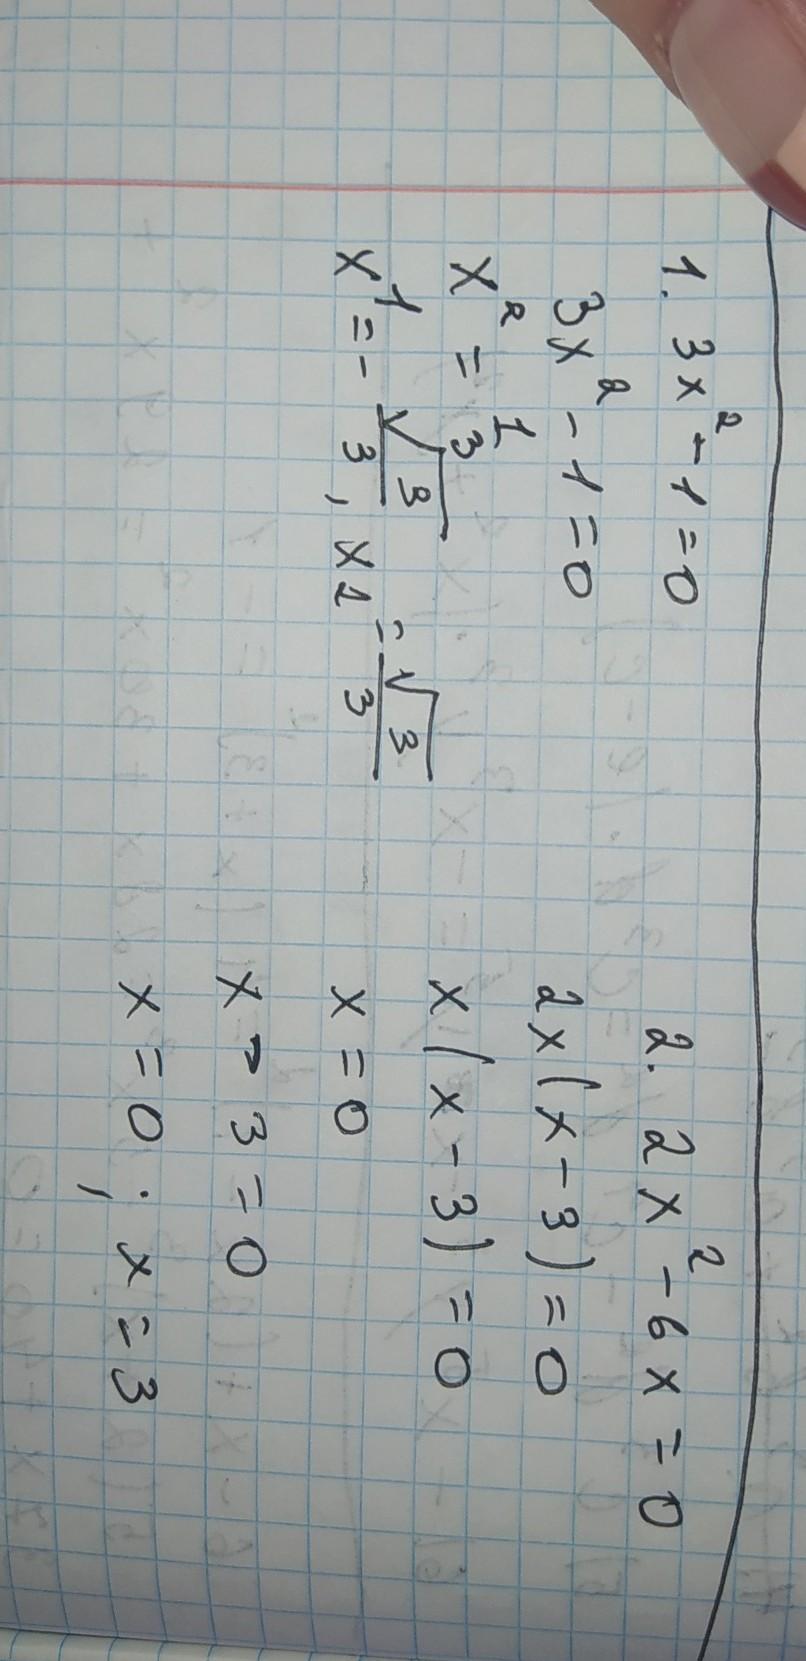 1. 3x² - 1 = 0
3x² - 1 = 0
x² = 1/3
x¹ = - √3/3, x2 = √3/3
2. 2x² - 6x = 0
2x(x - 3) = 0
x(x - 3) = 0
x = 0
x - 3 = 0
x = 0 ; x = 3